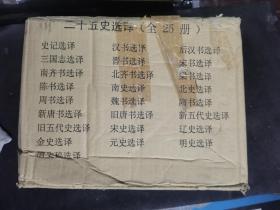 二十五史选译（全25册）
史记选译 汉书选译 后汉书选译
三国志选译 晋书选译 宋书选译
南齐书选译 北齐书选译 梁书选译
陈书选译 南史选译 北史选译
周书选译 魏书选译 隋书选译
新唐书选译 旧唐书选译 新五代史选译
旧五代史选译 宋史选译 辽史选译
金史选译 元史选译 明史选译